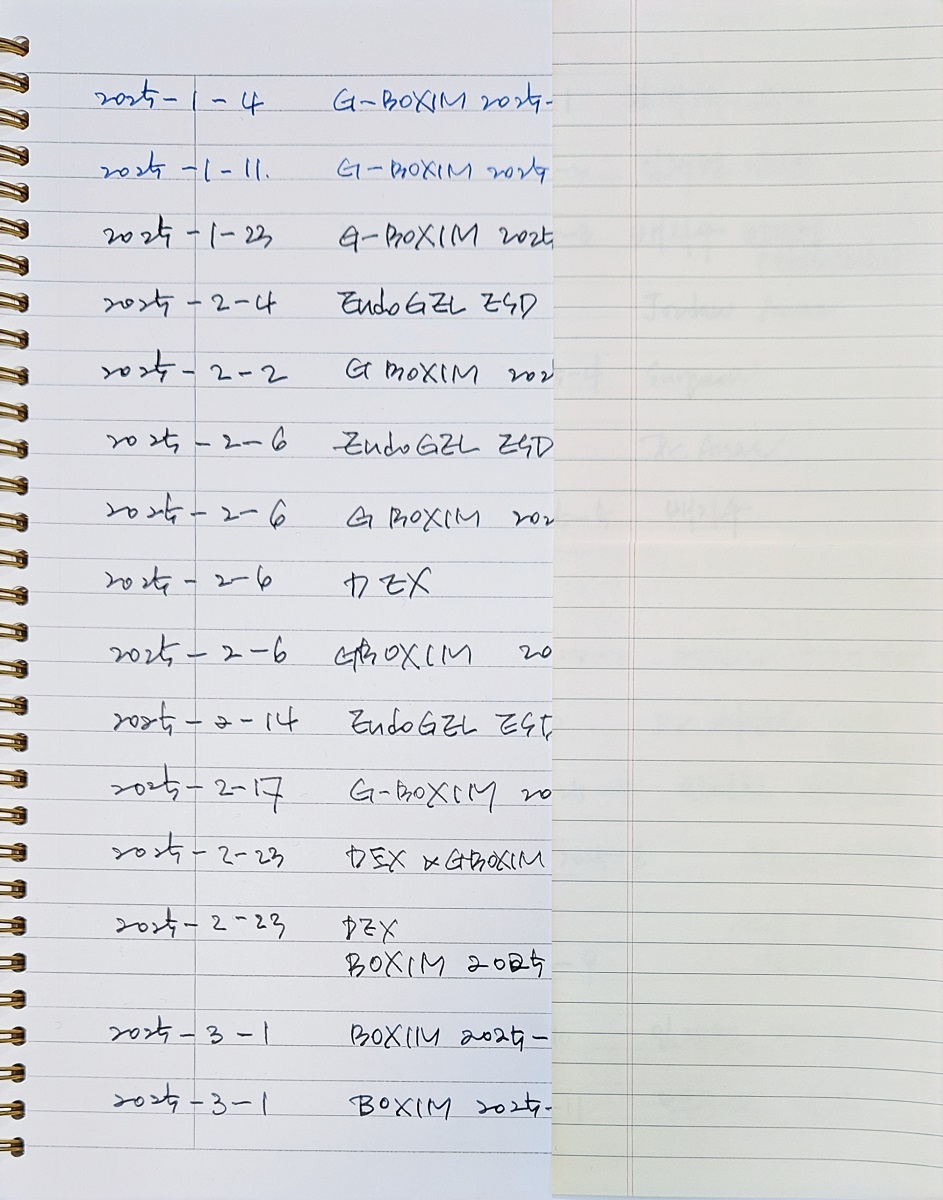 2025-1-4 G-BOXIM 2025-
2025-1-11. G-BOXIM 2025
2025-1-23 G-BOXIM 2025
2025-2-4 EndoGEL ESD
2025-2-2 G BOXIM 202
2025-2-6 EndoGEL ESD
2025-2-6 G BOXIM 202
2025-2-6 DEX
2025-2-6 GBOXIM 20
2025-2-14 EndoGEL ESD
2025-2-17 G-BOXIM 20
2025-2-23 DEX & GBOXIM
2025-2-23 DEX
BOXIM 2025
2025-3-1 BOXIM 2025-
2025-3-1 BOXIM 2025-